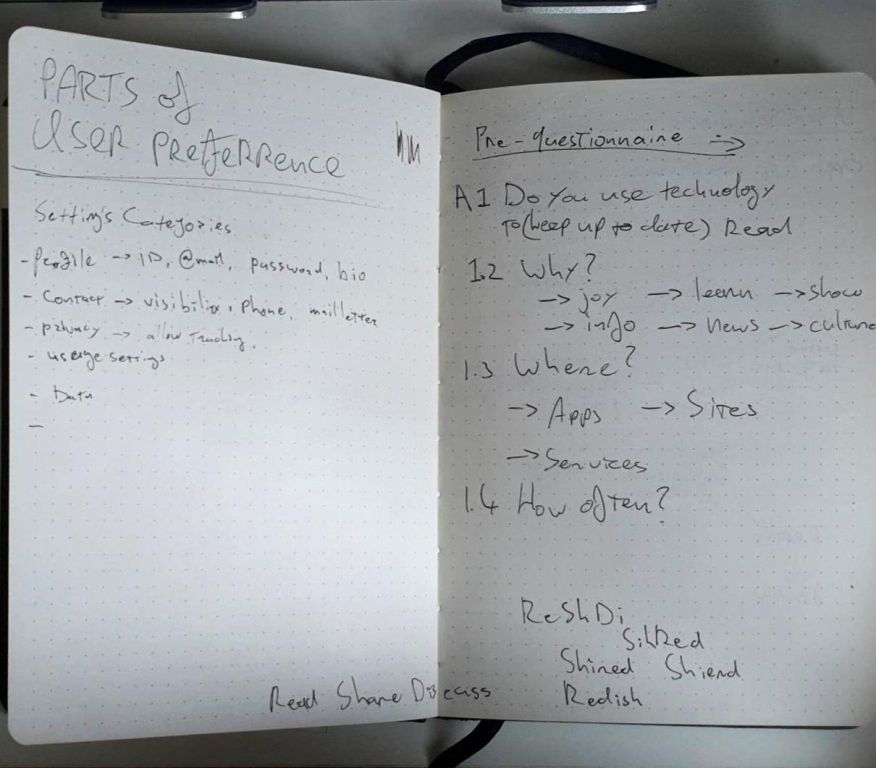 PARTS of
USER PREFERRENCE
Setting's Categories
- Profile -> ID, @mail, password, bio
- Contact -> visibility, Phone, mailletter
- privacy -> allow Tracking,
- usege settings
- Data
-
Read Share Discuss
Pre-questionnaire ->
A1 Do You use technology
To (keep up to date) Read
1.2 Why?
-> joy -> learn -> show
-> info -> news -> culture
1.3 Where?
-> Apps -> Sites
-> Services
1.4 How often?
ReShDi
Shined Shiend
Redish